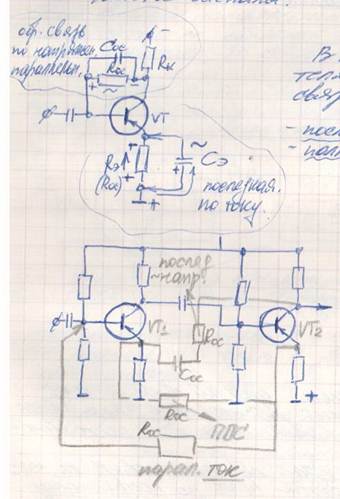 обр. связь
по напряжен.
параллельн.
Cос
Rос
Rк
~
+
VT
Rэ
(Rос)
~
Cэ
+
последоват.
по току.
В
связ
- посл
послед
~ напр.
VT1
Rос
VT2
Cос
Rос
ПОС
+
Rос
парал. ток